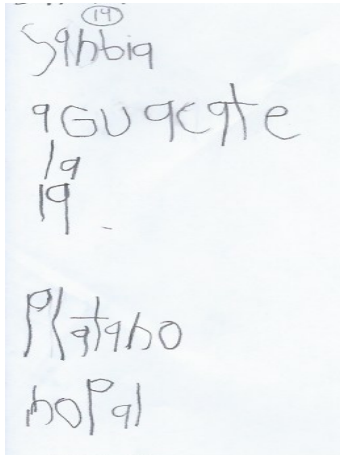 14
Sanbia
aGUacate
la
la
Platano
noPal